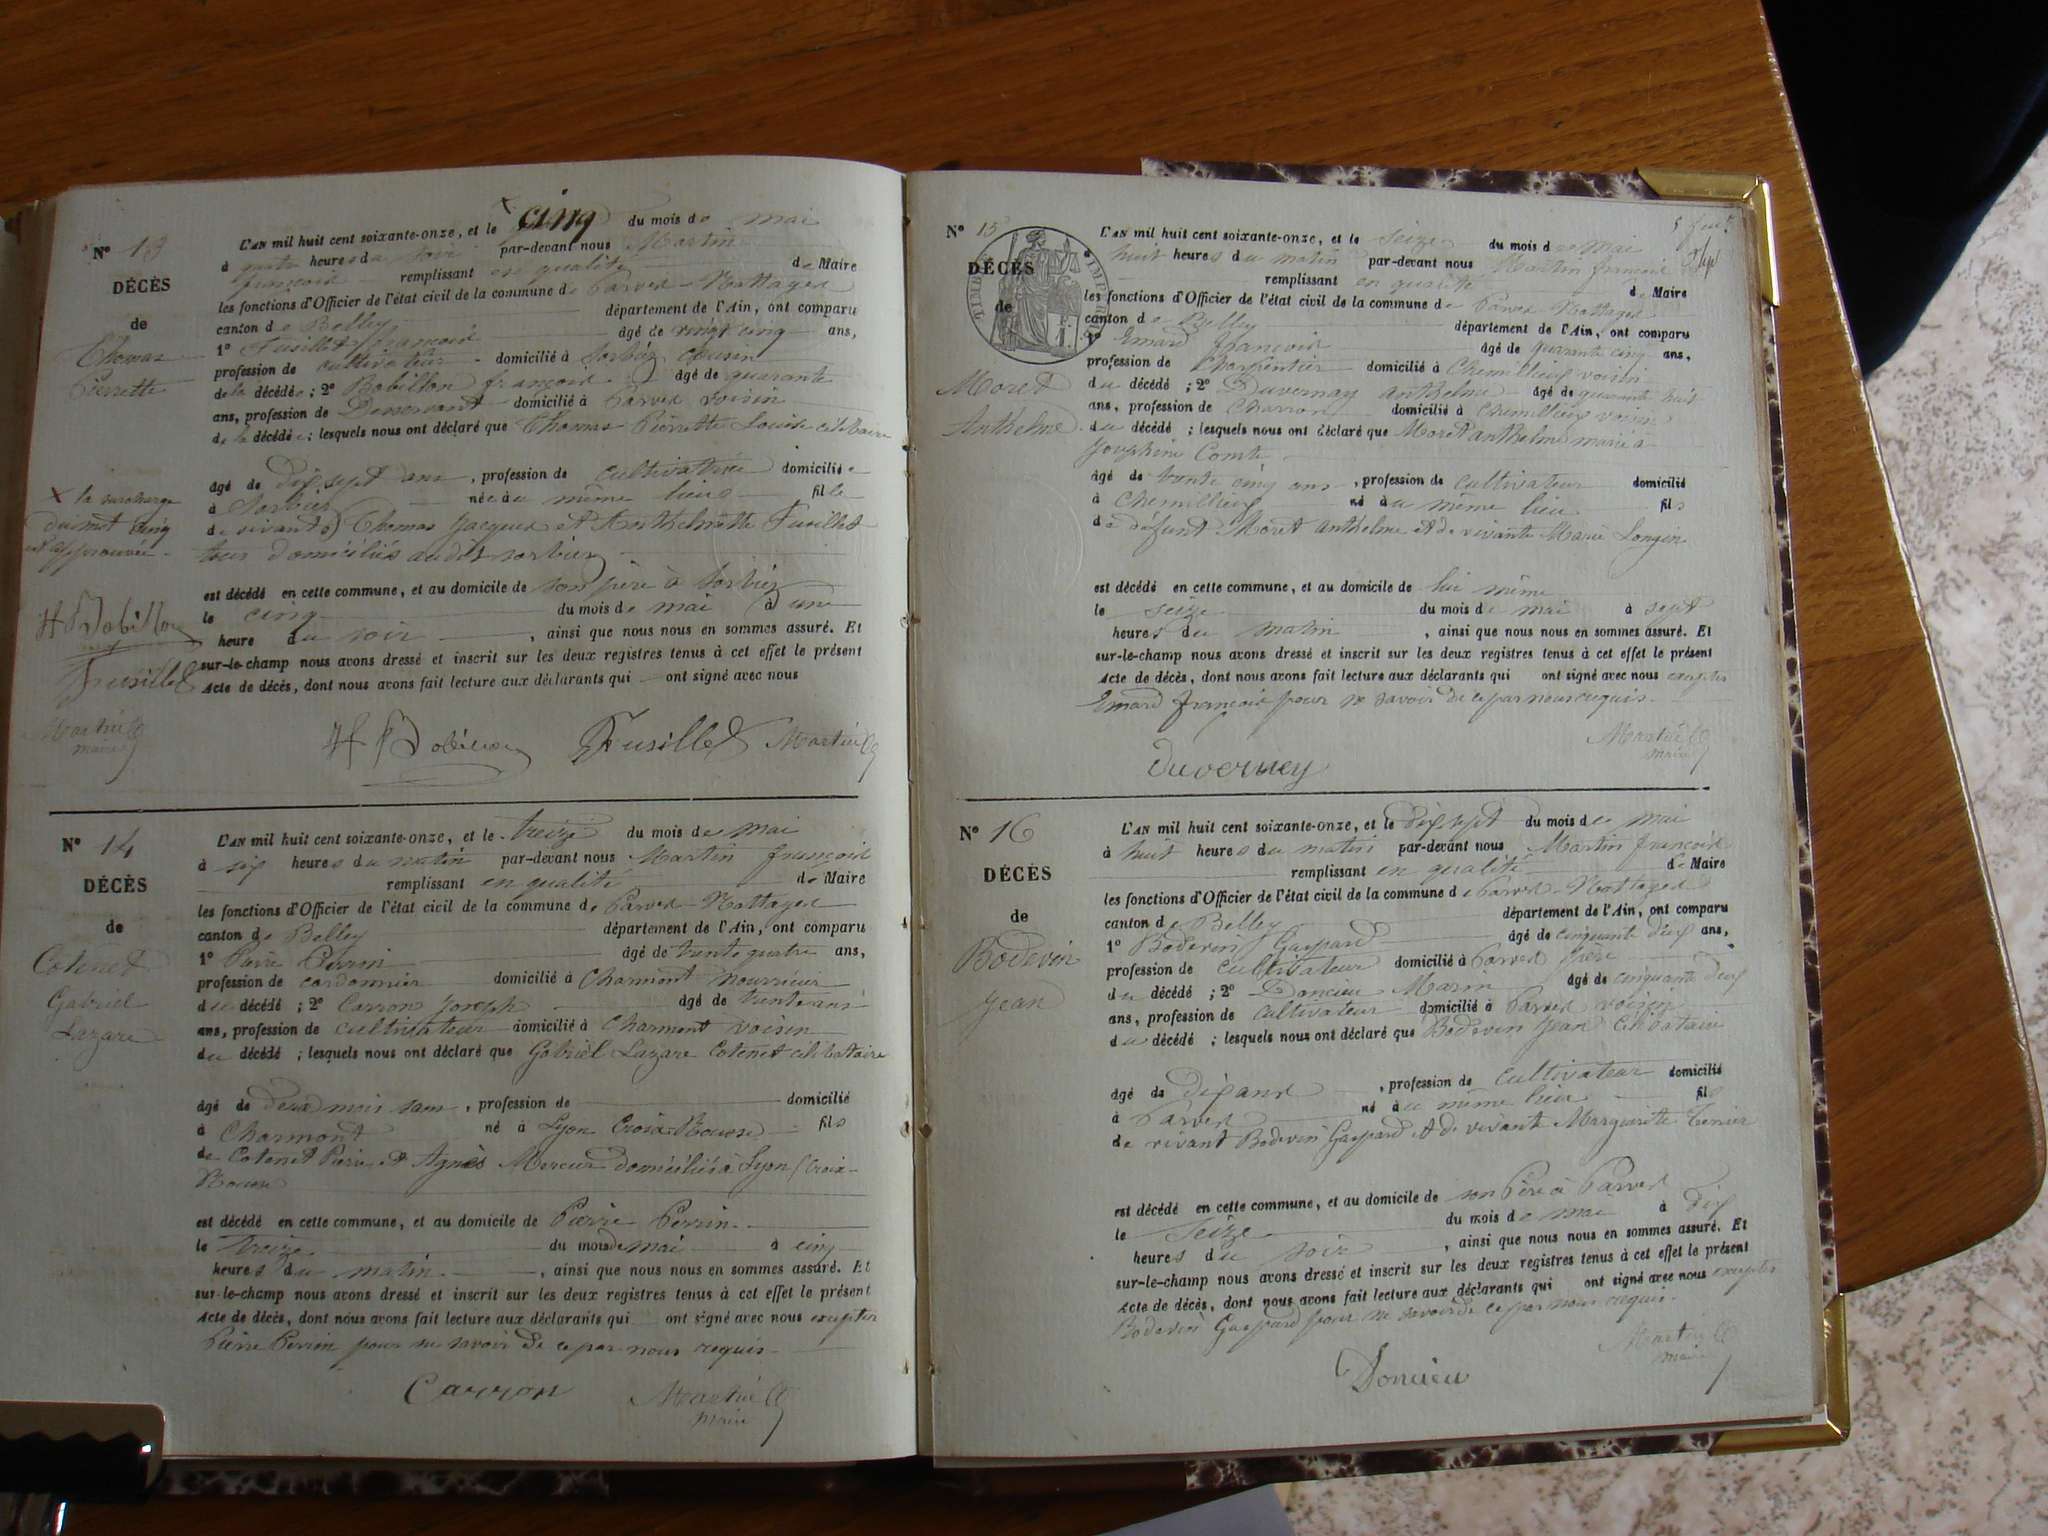 N° 13
DÉCÈS
de
Thomas
Pierrette
L'AN mil huit cent soixante-onze, et le cinq du mois de mai
à quatre heures du soir par-devant nous Martin
françois remplissant en qualité de Maire
les fonctions d'Officier de l'état civil de la commune de Parves-Nattages
canton de Belley département de l'Ain, ont comparu
1° Fusillet françois âgé de vingt cinq ans,
profession de cultivateur domicilié à Sorbiez cousin
de la décédée ; 2° Bobillon françois âgé de quarante
ans, profession de Desservant domicilié à Parves voisin
de la décédée ; lesquels nous ont déclaré que Thomas Pierrette Louise célibataire
âgé de dix sept ans, profession de cultivatrice domiciliée
à Sorbiez née au même lieu fille
de vivants Thomas Jacques et Anthelmette Fusillet
tous domiciliés audit sorbiez
est décédé en cette commune, et au domicile de son père à Sorbiez
le cinq du mois de mai à une
heure du soir, ainsi que nous nous en sommes assuré. Et
sur-le-champ nous avons dressé et inscrit sur les deux registres tenus à cet effet le présent
Acte de décès, dont nous avons fait lecture aux déclarants qui ont signé avec nous
x la surcharge
du mot cinq
est approuvée
Bobillon
Fusillet
Martin
maire
Bobillon Fusillet Martin
N° 14
DÉCÈS
de
Cotenet
Gabriel
Lazare
L'AN mil huit cent soixante-onze, et le treize du mois de mai
à six heures du matin par-devant nous Martin françois
remplissant en qualité de Maire
les fonctions d'Officier de l'état civil de la commune de Parves-Nattages
canton de Belley département de l'Ain, ont comparu
1° Pierre Perrin âgé de trente quatre ans,
profession de cordonnier domicilié à Charmont nourricier
du décédé ; 2° Carron Joseph âgé de trente ans
ans, profession de cultivateur domicilié à Charmont voisin
du décédé ; lesquels nous ont déclaré que Gabriel Lazare Cotenet célibataire
âgé de deux mois sans, profession de domicilié
à Charmont né à Lyon Croix-Rousse fils
de Cotenet Pierre et Agnès Mercier domiciliés à Lyon (Croix-
Rousse
est décédé en cette commune, et au domicile de Pierre Perrin
le treize du mois de mai à cinq
heures du matin, ainsi que nous nous en sommes assuré. Et
sur-le-champ nous avons dressé et inscrit sur les deux registres tenus à cet effet le présent
Acte de décès, dont nous avons fait lecture aux déclarants qui ont signé avec nous excepter
Pierre Perrin pour ne savoir de ce par nous requis
Carron Martin
maire
N° 15
DÉCÈS
de
Moret
Anthelme
L'AN mil huit cent soixante-onze, et le seize du mois de mai
huit heures du matin par-devant nous Martin françois
remplissant en qualité de Maire
les fonctions d'Officier de l'état civil de la commune de Parves-Nattages
canton de Belley département de l'Ain, ont comparu
1° Emard françois âgé de quarante cinq ans,
profession de Charpentier domicilié à Chemillieu voisin
du décédé ; 2° Duvernay anthelme âgé de quarante huit
ans, profession de Charron domicilié à Chemillieu voisin
du décédé ; lesquels nous ont déclaré que Moret anthelme marié à
Josephine Comte
âgé de trente cinq ans, profession de cultivateur domicilié
à Chemillieu né au même lieu fils
de défunt Moret anthelme et de vivante Marie Longin
est décédé en cette commune, et au domicile de lui même
le seize du mois de mai à sept
heures du matin, ainsi que nous nous en sommes assuré. Et
sur-le-champ nous avons dressé et inscrit sur les deux registres tenus à cet effet le présent
Acte de décès, dont nous avons fait lecture aux déclarants qui ont signé avec nous excepter
Emard françois pour ne savoir de ce par nous requis
Martin
maire
Duverney
N° 16
DÉCÈS
de
Bodevin
Jean
L'AN mil huit cent soixante-onze, et le dix sept du mois de mai
à huit heures du matin par-devant nous Martin françois
remplissant en qualité de Maire
les fonctions d'Officier de l'état civil de la commune de Parves-Nattages
canton de Belley département de l'Ain, ont comparu
1° Bodevin Gaspard âgé de cinquante deux ans,
profession de cultivateur domicilié à Parves père
du décédé ; 2° Doncieu Marin âgé de cinquante deux
ans, profession de cultivateur domicilié à Parves voisin
du décédé ; lesquels nous ont déclaré que Bodevin Jean Célibataire
âgé de dix ans, profession de cultivateur domicilié
à Parves né au même lieu fils
de vivant Bodevin Gaspard et de vivante Marguerite Tenier
est décédé en cette commune, et au domicile de son Père à Parves
le Seize du mois de mai à dix
heures du soir, ainsi que nous nous en sommes assuré. Et
sur-le-champ nous avons dressé et inscrit sur les deux registres tenus à cet effet le présent
Acte de décès, dont nous avons fait lecture aux déclarants qui ont signé avec nous excepter
Bodevin Gaspard pour ne savoir de ce par nous requis
Martin
maire
Doncieu